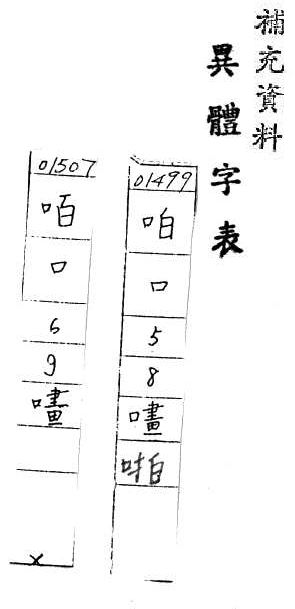 補充資料
異體字表
01499
咱
口
5
8
01507
咟
口
6
9
×